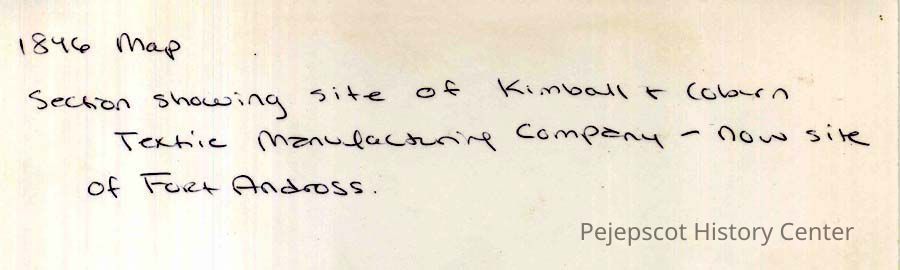 1846 Map
Section showing site of Kimball + Coburn
Textile Manufacturing Company - now site
of Fort Andross.
Pejepscot History Center